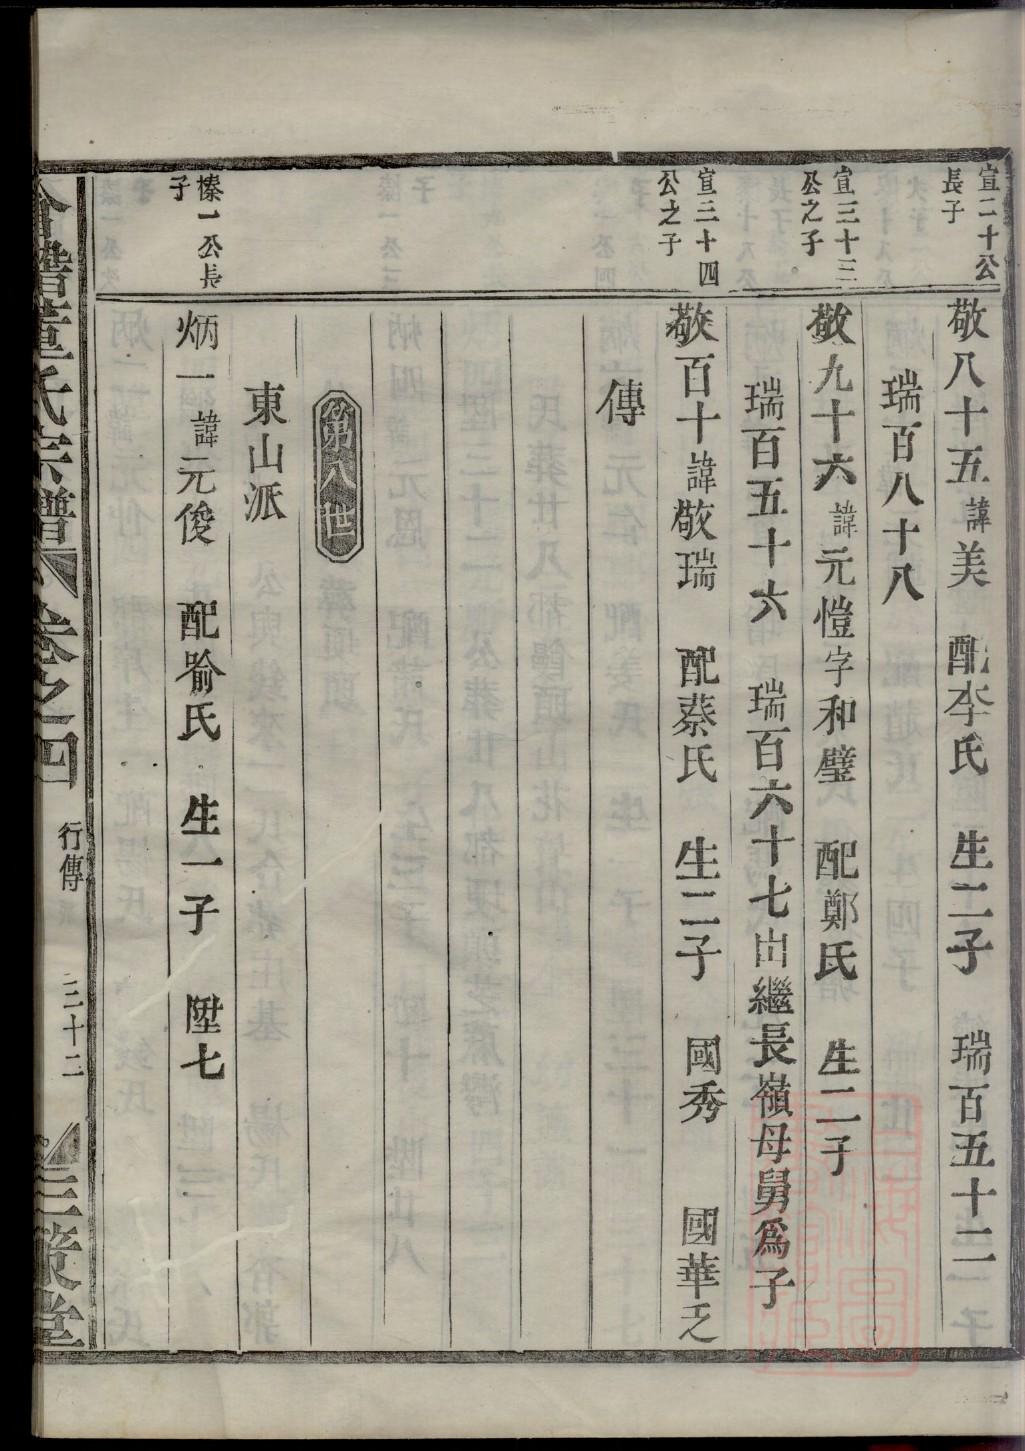 宣二十公
長子
敬八十五諱美 配李氏 生二子 瑞百五十二
瑞百八十八
宣三十三
公之子
敬九十六諱元愷字和璧 配鄭氏 生二子
瑞百五十六 瑞百六十七出繼長嶺母舅為子
宣三十四
公之子
敬百十諱敬瑞 配蔡氏 生二子 國秀 國華乏
傳
第八世
東山派
榛一公長
子
炳一諱元俊 配喻氏 生一子 陞七
董氏宗譜 卷之四 行傳 三十二 三策堂